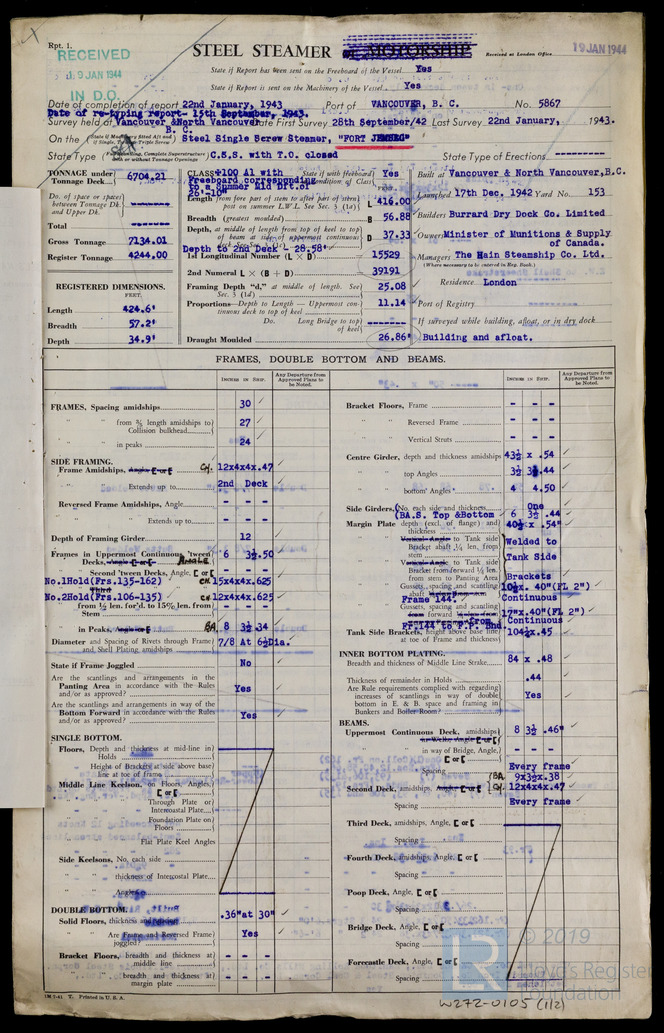 Rpt. 1.
RECEIVED
9 JAN 1944
IN D.O.
STEEL STEAMER or MOTORSHIP
Received at London Office
19 JAN 1944
State if Report has been sent on the Freeboard of the Vessel Yes
State if Report is sent on the Machinery of the Vessel Yes
Date of completion of report 22nd January, 1943 Port of VANCOUVER, B. C. No. 5867
Date of re-typing report- 15th September, 1943.
Survey held at Vancouver & North Vancouver Date First Survey 28th September/42 Last Survey 22nd January, 1943.
B. C.
On the (State if Machinery fitted Aft and if Single, Twin or Triple Screw) Steel Single Screw Steamer, "FORT JEMSEG"
State Type (Full scantling, Complete Superstructure with or without Tonnage Openings) C.S.S. with T.O. closed State Type of Erections ---------
TONNAGE under Tonnage Deck 6704.21
Do. of space or spaces between Tonnage Dk. and Upper Dk. -------
Total -------
Gross Tonnage 7134.01
Register Tonnage 4244.00
REGISTERED DIMENSIONS.
FEET.
Length 424.6'
Breadth 57.2'
Depth 34.9'
CLASS +100 A1 with State if with freeboard Yes
Freeboard corresponding condition of Class
to a Summer Mld Dft.of
26'-10"
Length from fore part of stem to after part of stern post on summer L.W.L. See Sec. 3 (1a) L 416.00
Breadth (greatest moulded) B 56.88
Depth, at middle of length from top of keel to top of beam at side of uppermost continuous deck. See Sec. 3 (1c) D 37.33
Depth to 2nd Deck - 28.58'
1st Longitudinal Number (L x D) 15529
2nd Numeral L x (B + D) 39191
Framing Depth "d," at middle of length. See Sec. 3 (1d) 25.08
Proportions—Depth to Length—Uppermost continuous deck to top of keel 11.14
Do. Long Bridge to top of keel -------
Draught Moulded 26.86'
Built at Vancouver & North Vancouver, B.C.
Launched 17th Dec. 1942 Yard No. 153
Builders Burrard Dry Dock Co. Limited
Owners Minister of Munitions & Supply
of Canada.
Managers The Hain Steamship Co. Ltd.
(Where necessary to be entered in Reg. Book.)
Residence London
Port of Registry
If surveyed while building, afloat, or in dry dock
Building and afloat.
FRAMES, DOUBLE BOTTOM AND BEAMS.
INCHES IN SHIP.
Any Departure from Approved Plans to be Noted.
FRAMES, Spacing amidships 30
" " from ⅗ length amidships to Collision bulkhead 27
" " in peaks 24
SIDE FRAMING.
Frame Amidships, Angle [ or [ CH. 12x4x4x.47
" " Extends up to 2nd Deck
Reversed Frame Amidships, Angle - - -
" " Extends up to - - -
Depth of Framing Girder 12
Frames in Uppermost Continuous 'tween Decks, Angle [ or [ ANGLE 6 3½.50
" Second 'tween Decks, Angle, [ or [ - - -
No.1Hold(Frs.135-162) CH 15x4x4x.625
No.2Hold(Frs.106-135) CH 12x4x4x.625
" from ½ len. for'd. to 15% len. from Stem - - -
" in Peaks, Angle or [ BA 8 3½ 34
Diameter and Spacing of Rivets through Frame and Shell Plating, amidships 7/8 At 6½Dia.
State if Frame Joggled No
Are the scantlings and arrangements in the Panting Area in accordance with the Rules and/or as approved? Yes
Are the scantlings and arrangements in way of the Bottom Forward in accordance with the Rules and/or as approved? Yes
SINGLE BOTTOM.
Floors, Depth and thickness at mid-line in Holds
" Height of Brackets at side above base line at toe of frame
Middle Line Keelson, on Floors, Angles, [ or [
" " Through Plate or Intercostal Plate
" " Foundation Plate on Floors
" " Flat Plate Keel Angles
Side Keelsons, No. each side
" " thickness of Intercostal Plate
" " Angles
DOUBLE BOTTOM.
Solid Floors, thickness and .36"at 30"
" " Are Frame and Reversed Frame joggled? Yes
Bracket Floors, breadth and thickness at middle line - - -
" " breadth and thickness at margin plate - - -
Bracket Floors, Frame - - -
" " Reversed Frame - - -
" " Vertical Struts - - -
Centre Girder, depth and thickness amidships 43½ x .54
" " top Angles 3½ 3½.44
" " bottom Angles 4 4.50
Side Girders, No. each side and thickness One
(BA.S. Top &Bottom 6 3½ .44
Margin Plate depth (excl. of flange) and thickness 40½ x .54"
" " Vertical Angle to Tank side Bracket abaft ¼ len. from stem Welded to
" " Vertical Angle to Tank side Bracket from forward ¼ len. from stem to Panting Area Tank Side
Brackets
" " Gussets, spacing and scantling abaft 10½x. 40"(FL 2")
Frame 144. Continuous
" " Gussets, spacing and scantling forward 17"x.40"(FL 2")
Fr.144 to F.P. Bhd Continuous
Tank Side Brackets, height above base line at toe of Frame and thickness 104½x.45
INNER BOTTOM PLATING.
Breadth and thickness of Middle Line Strake 84 x .48
Thickness of remainder in Holds .44
Are Rule requirements complied with regarding increases of scantlings in way of double bottom in E. & B. space and framing in Bunkers and Boiler Room? Yes
BEAMS.
Uppermost Continuous Deck, amidships 8 3½ .46"
" " in way of Bridge, Angle, [ or [ - - -
Spacing Every frame
Second Deck, amidships, Angle [ or [ BA. 9x3½x.38
CH. 12x4x4x.47
Spacing Every frame
Third Deck, amidships, Angle, [ or [
Spacing
Fourth Deck, amidships, Angle, [ or [
Spacing
Poop Deck, Angle, [ or [
Spacing
Bridge Deck, Angle, [ or [
Spacing
Forecastle Deck, Angle, [ or [
Spacing
1M 7-41 T. Printed in U.S.A.
LR
© 2019
Lloyd's Register
Foundation
W272-0105 (1/2)